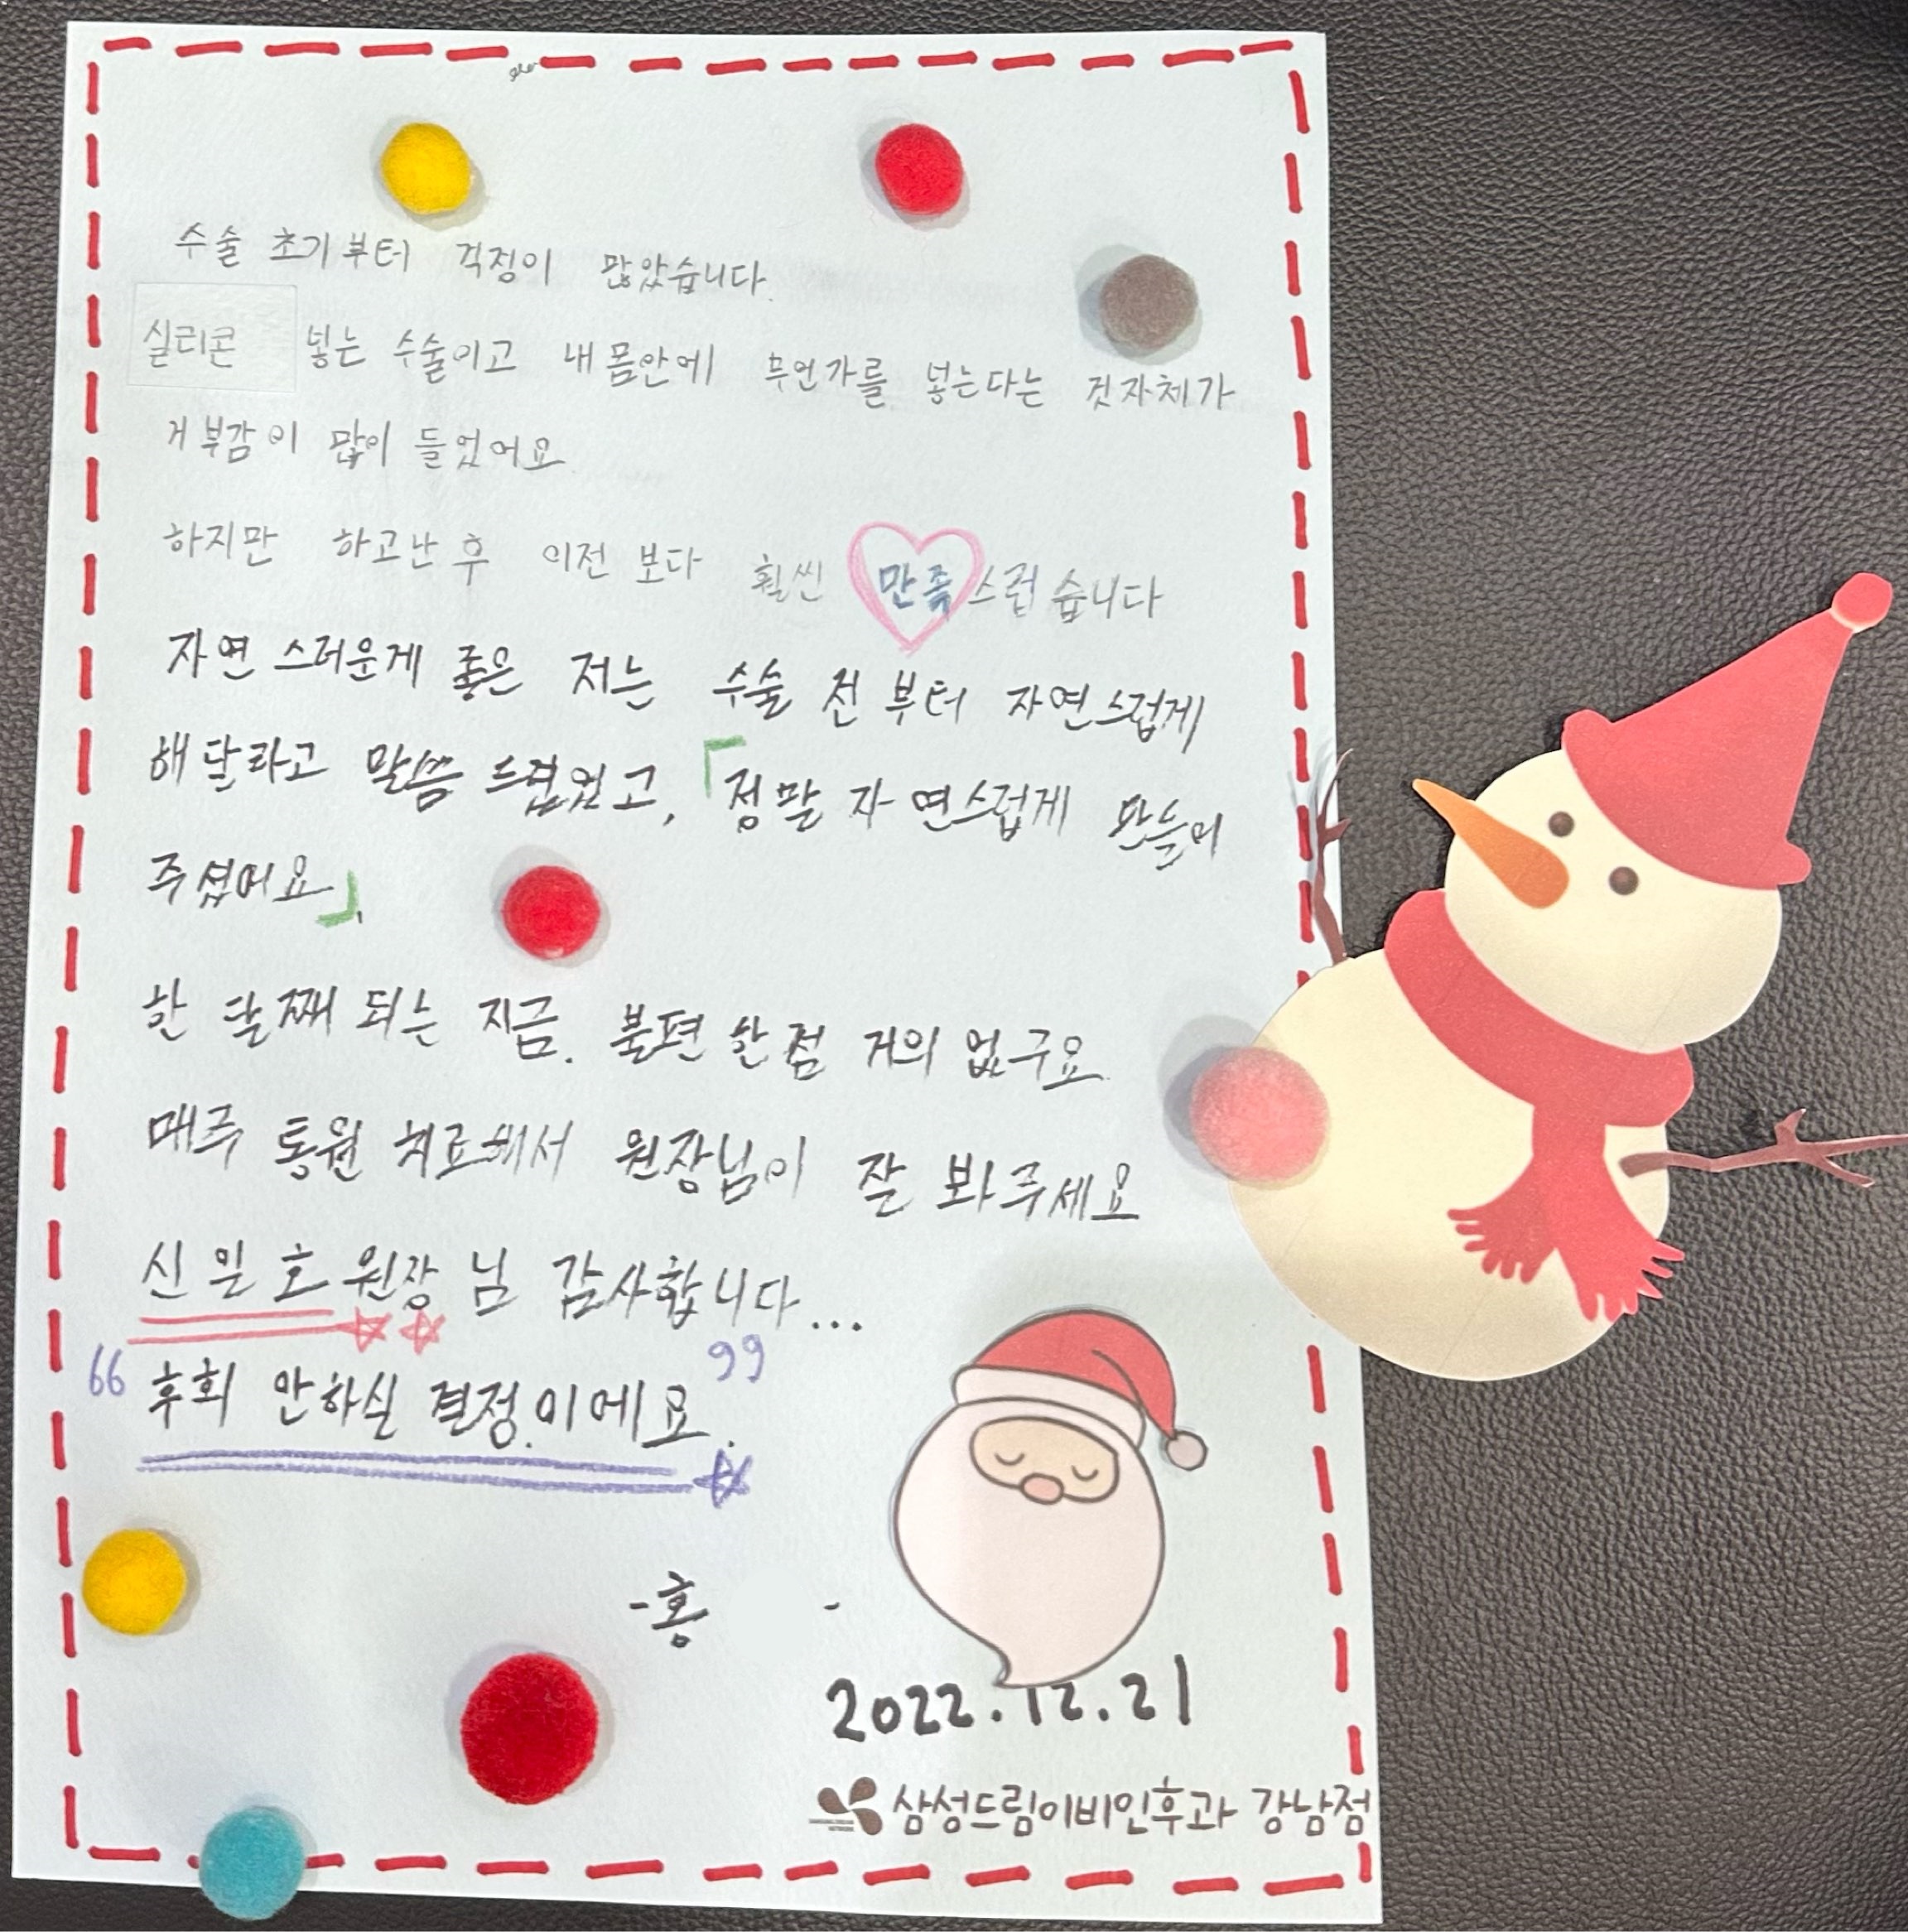 수술 초기부터 걱정이 많았습니다.
실리콘 넣는 수술이고 내 몸안에 무언가를 넣는다는 것자체가
거부감이 많이 들었어요
하지만 하고난 후 이전 보다 훨씬 만족스럽습니다
자연스러운게 좋은 저는 수술 전부터 자연스럽게
해달라고 말씀 드렸었고, 「정말 자연스럽게 만들어
주셨어요」.
한 달째 되는 지금. 불편한점 거의 없구요
매주 통원 치료해서 원장님이 잘 봐주세요
신일호 원장님 감사합니다...
“후회 안하실 결정이에요.”
-홍 -
2022.12.21
삼성드림이비인후과 강남점